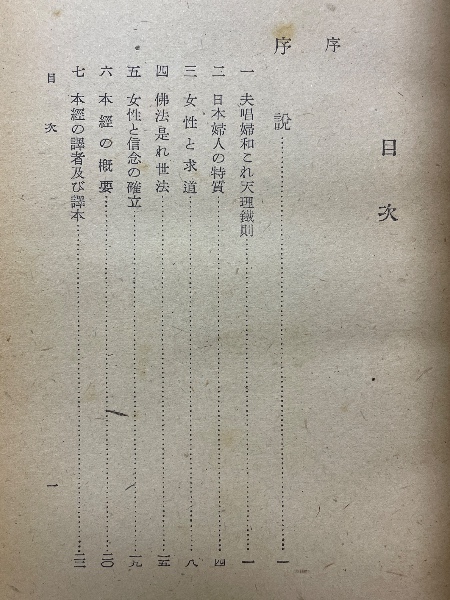 目次
序
序説……一
一 夫唱婦和これ天理鐵則……一
二 日本婦人の特質……四
三 女性と求道……八
四 佛法是れ世法……一五
五 女性と信念の確立……一九
六 本經の概要……二〇
七 本經の譯者及び譯本……二三
目次 一